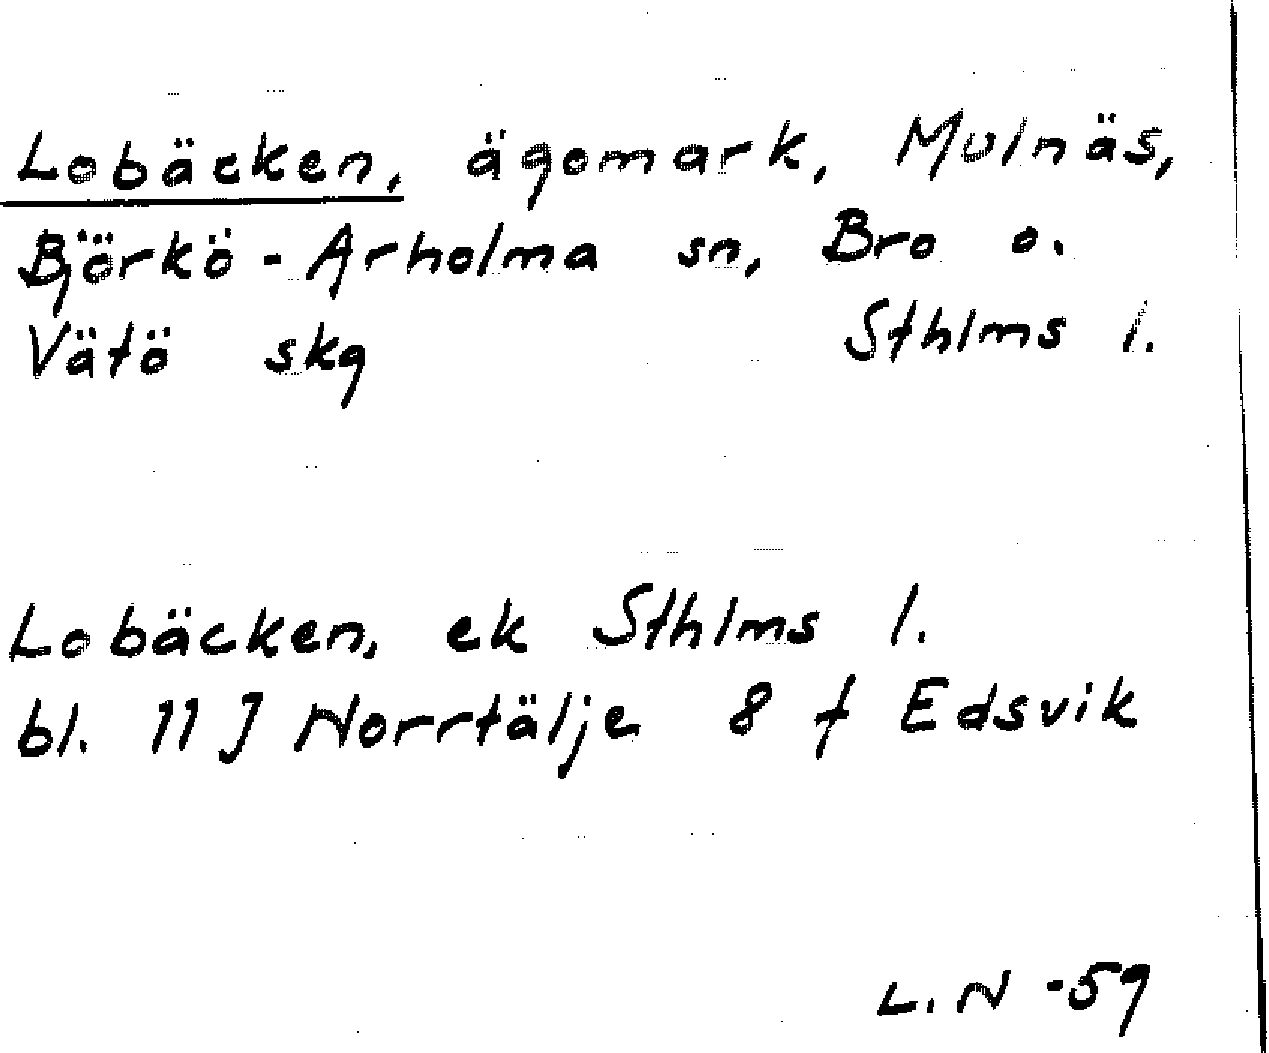 Lobäcken, ägomark, Mulnäs,
Björkö-Arholma sn, Bro o.
Vätö skg Sthlms l.
Lobäcken, ek Sthlms l.
bl. 11 J Norrtälje 8 f Edsvik
L.N -59